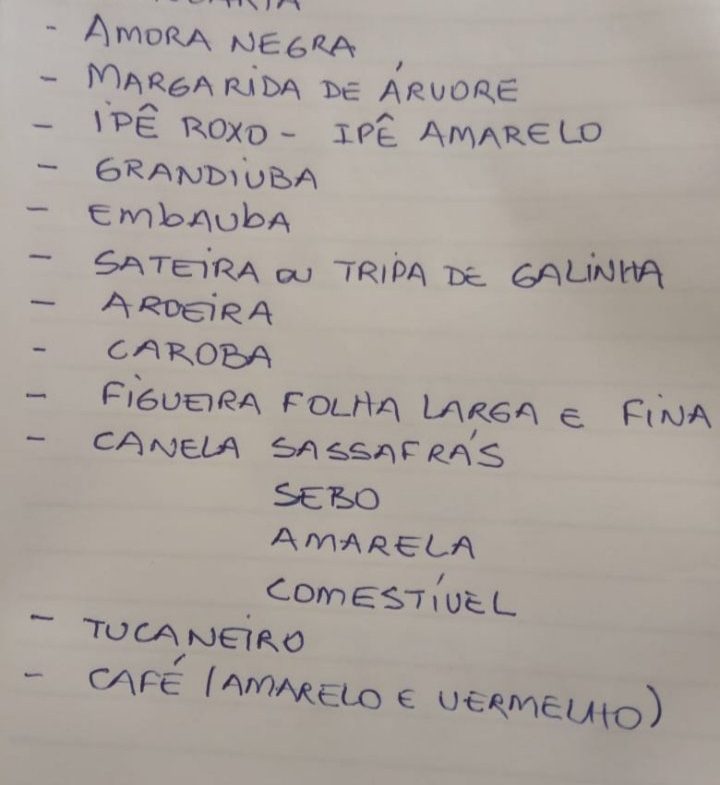 - AMORA NEGRA
- MARGARIDA DE ÁRVORE
- IPÊ ROXO - IPÊ AMARELO
- GRANDIUBA
- EMbAUbA
- SATEIRA OU TRIPA DE GALINHA
- AROEIRA
- CAROBA
- FIGUEIRA FOLHA LARGA E FINA
- CANELA SASSAFRÁS
SEBO
AMARELA
COMESTÍVEL
- TUCANEIRO
- CAFÉ (AMARELO E VERMELHO)